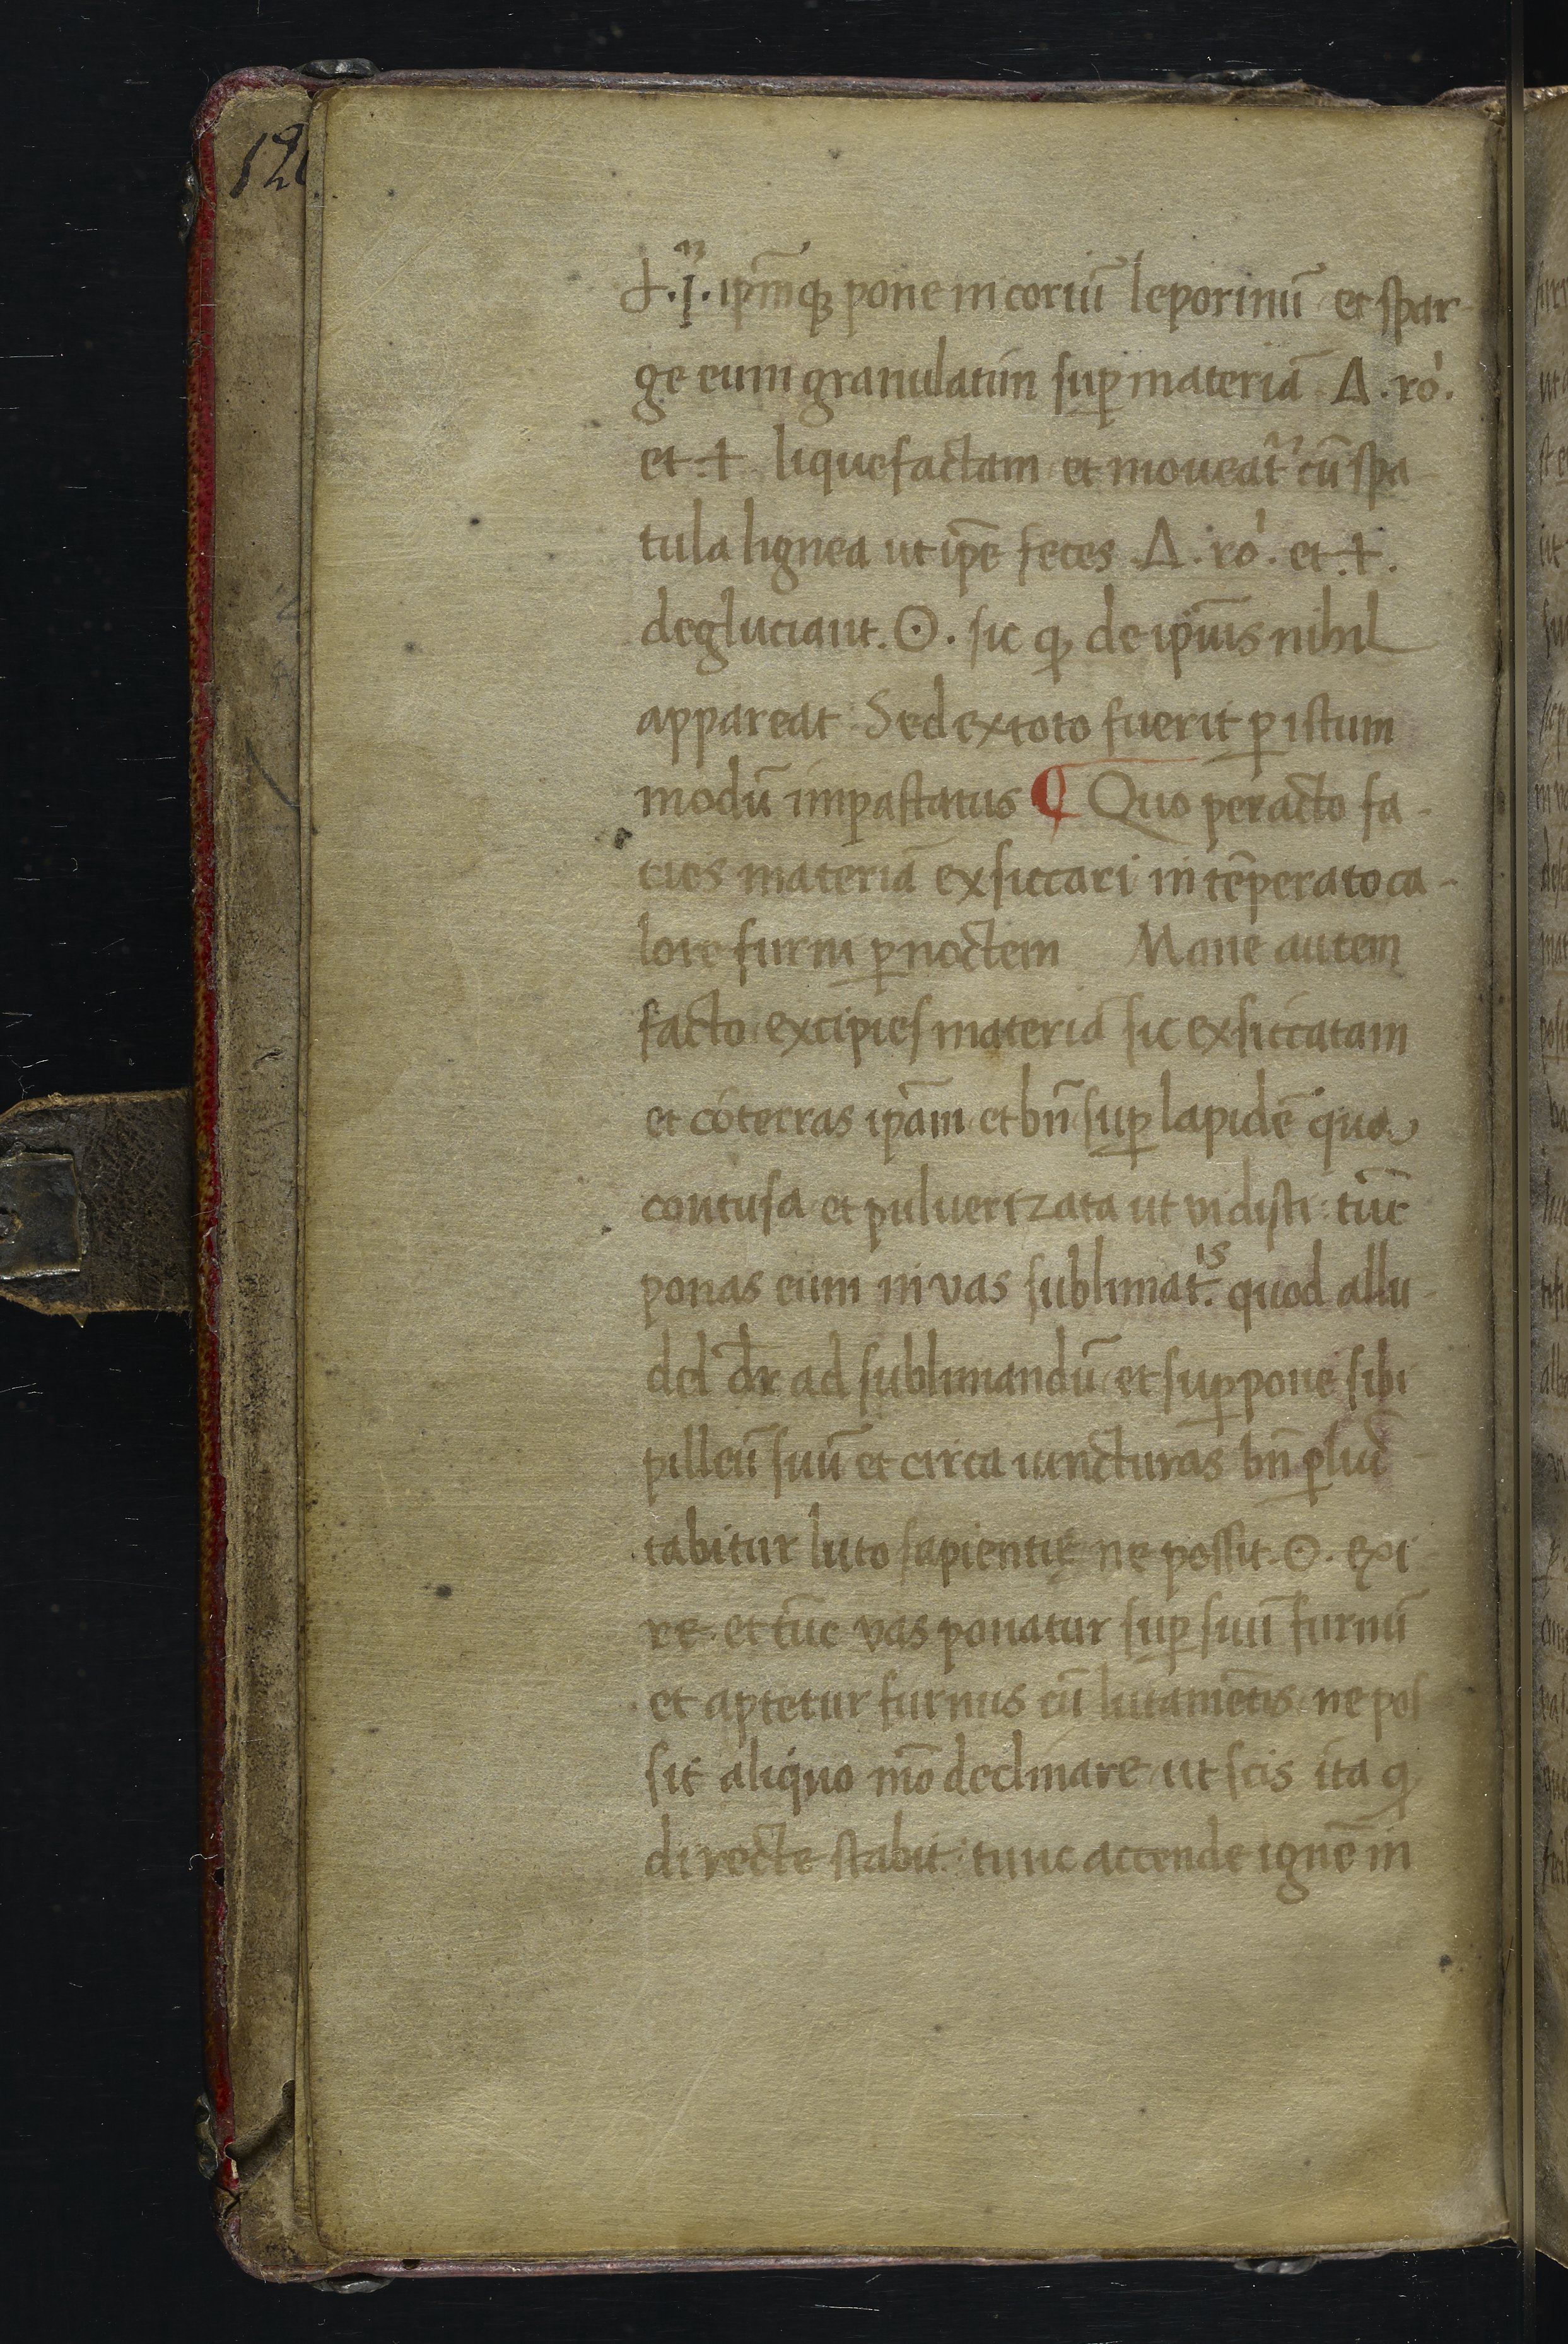 120
♃.j. ip̄mqꝫ pone in coriū leporinū et spar
ge eum granulatim suꝑ materiā Δ. ro.
et .☩. liquefactam et moueat᷑ cū spa
tula lignea ut ip̄e feces .Δ. ro. et .☩.
degluciant. ☉. sic ꝙ de ip̄ius nihil
appareat Sed ex toto fuerit ꝑ istum
modū impastatus ¶ Quo peracto fa-
cies materiā exsiccari in tēperato ca-
lore furni ꝑ noctem Mane autem
facto excipies materiā sic exsiccatam
et cōterras ip̄am et bn̄ suꝑ lapidē qua
contusa et puluerizata ut vidisti: tūc
ponas eum in vas sublimat.is quod allu-
del dr̄ ad sublimandū et suꝑpone sibi
pilleū suū et circa iuncturas bn̄ ꝑlu-
tabitur luto sapientię ne possit .☉. exi-
re et tūc vas ponatur suꝑ suū furnū
et aptetur furnus cū lutamētis ne pos
sit aliquo mō declinare ut scis ita ꝙ
directe stabit: tunc accende ignē in